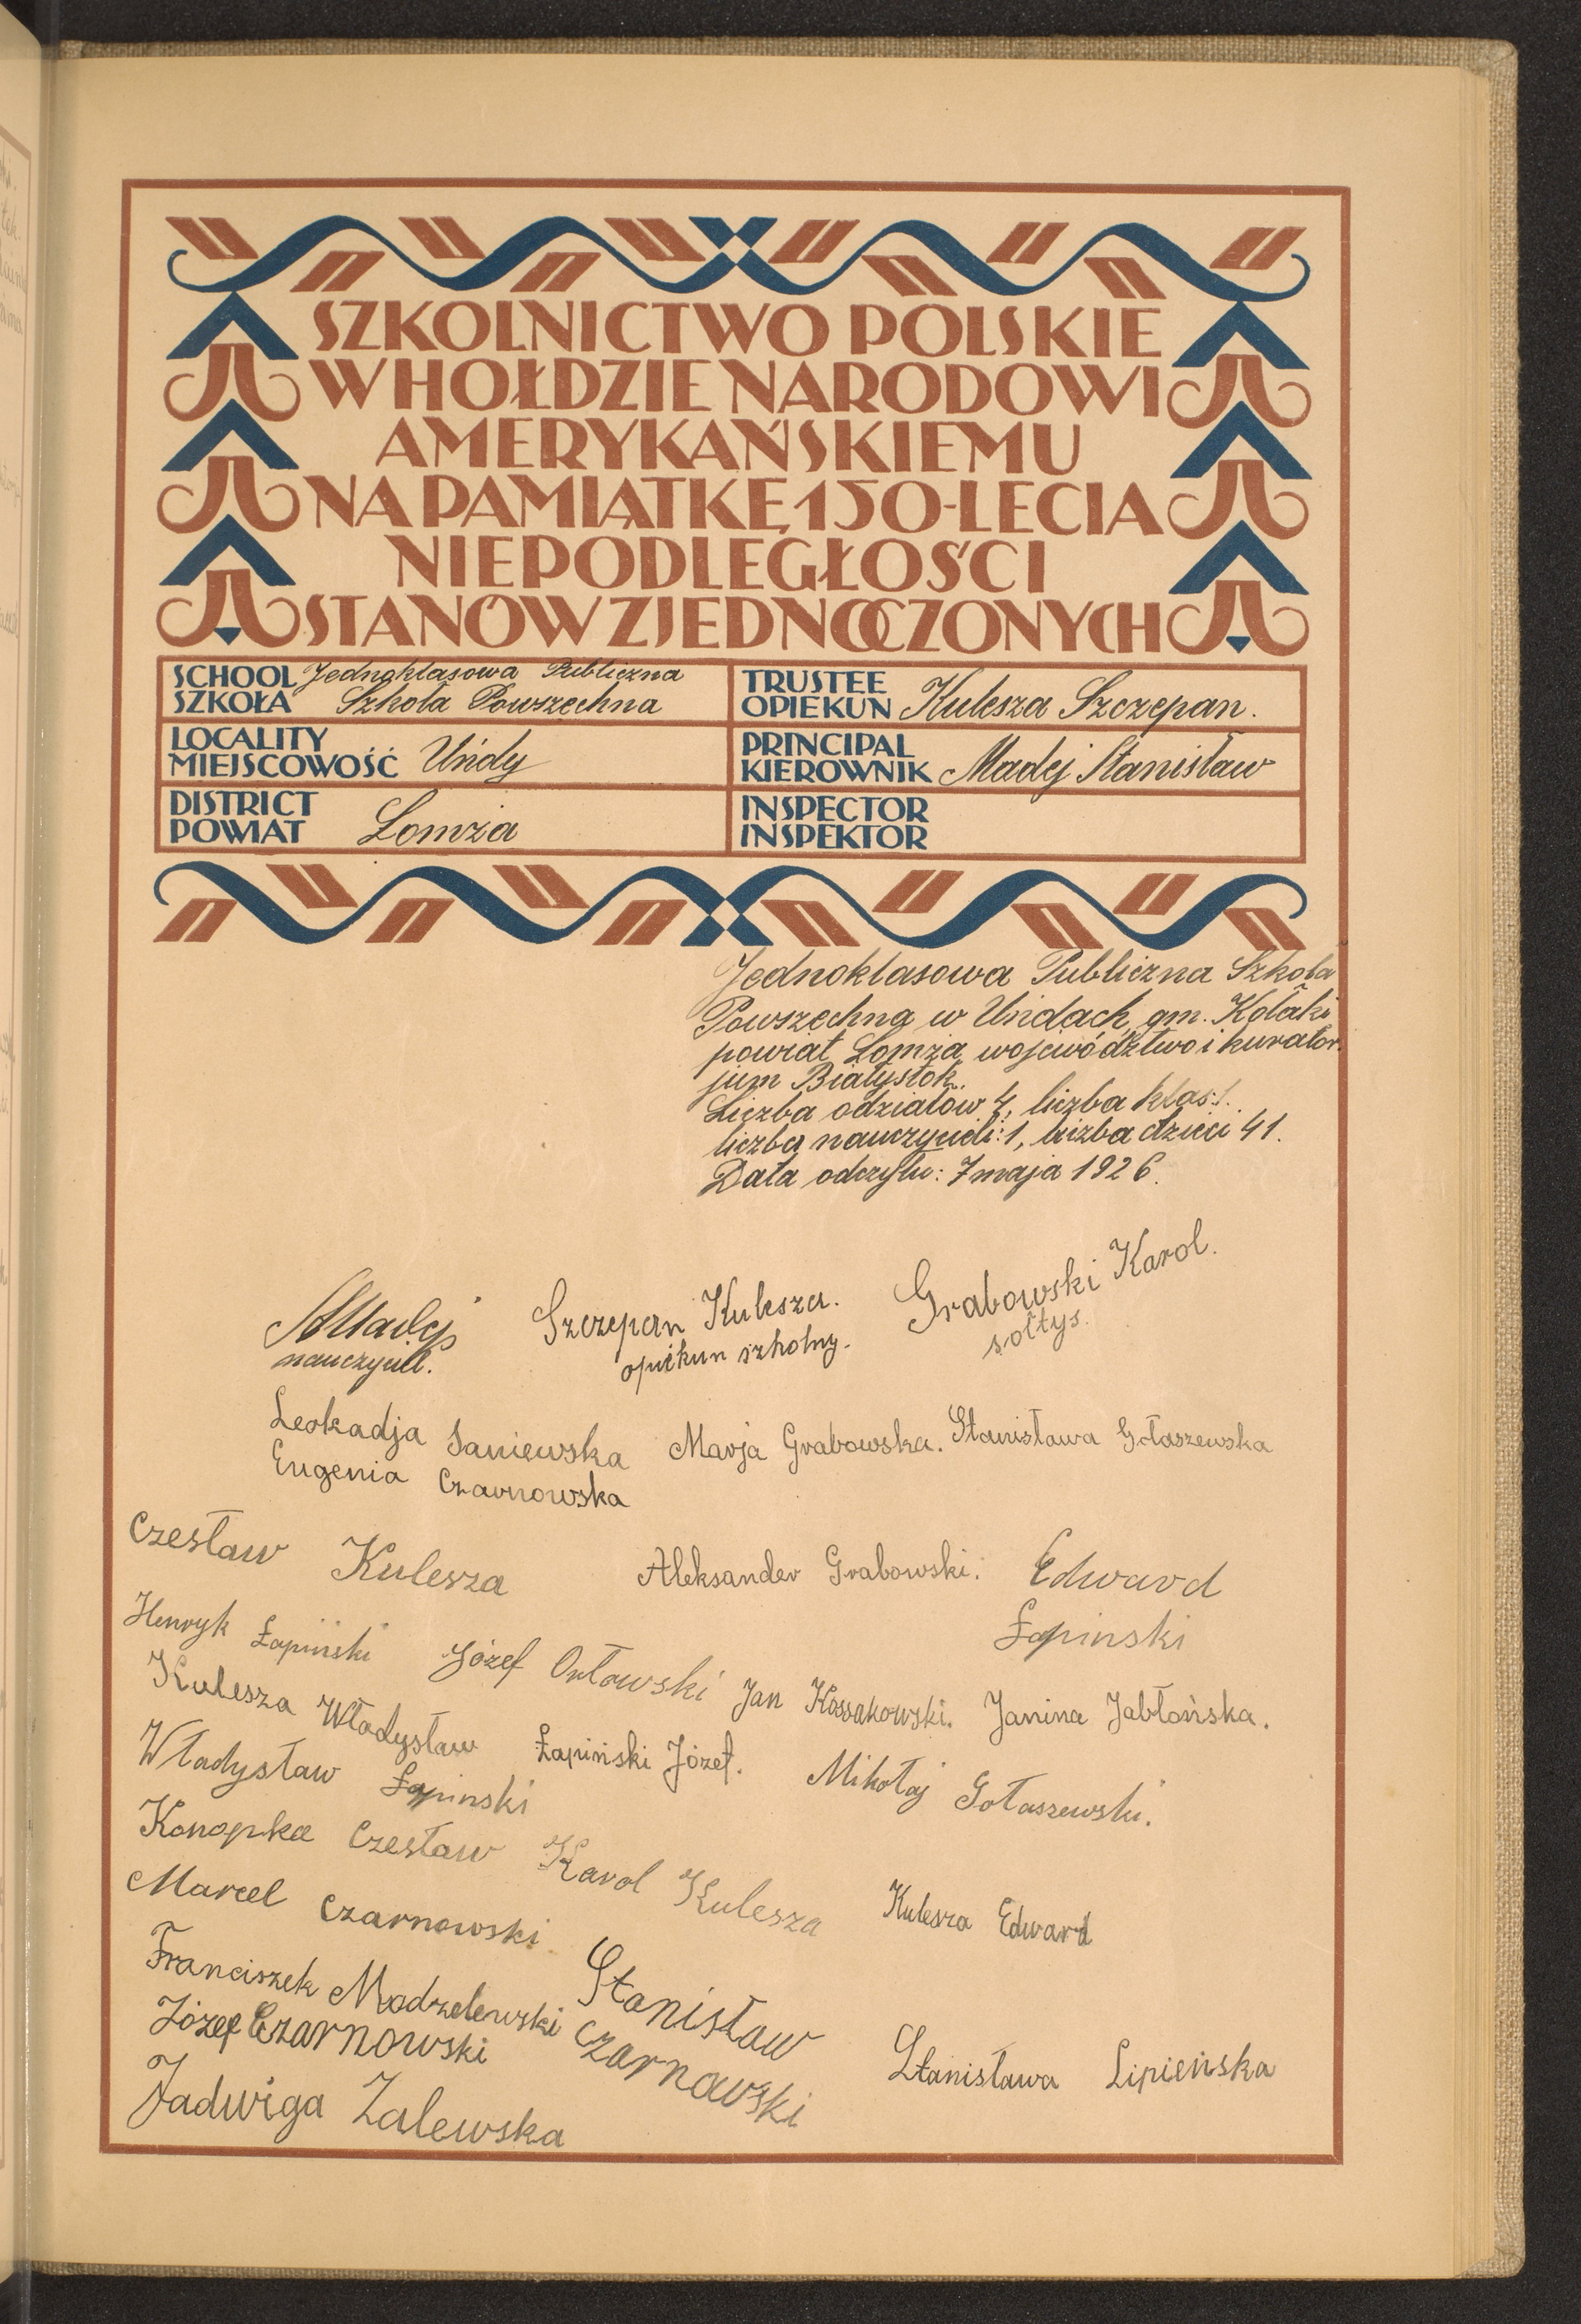 SZKOLNICTWO POLSKIE
W HOŁDZIE NARODOWI
AMERYKAŃSKIEMU
NA PAMIĄTKĘ 150-LECIA
NIEPODLEGŁOŚCI
STANÓW ZJEDNOCZONYCH
SCHOOL Jednoklasowa Publiczna
SZKOŁA Szkoła Powszechna
TRUSTEE
OPIEKUN Kulesza Szczepan.
LOCALITY
MIEJSCOWOŚĆ Uńdy
PRINCIPAL
KIEROWNIK Madej Stanisław
DISTRICT
POWIAT Łomża
INSPECTOR
INSPEKTOR
Jednoklasowa Publiczna Szkoła
Powszechna w Uńdach, gm. Kołaki
powiat Łomża, województwo i kurator-
jum Białystok.
Liczba odziałów 4, liczba klas: 1.
liczba nauczycieli: 1, liczba dzieci 41.
Data odczytu: 7 maja 1926.
SMadej
nauczyciel.
Szczepan Kulesza.
opiekun szkolny.
Grabowski Karol.
sołtys.
Leokadja Janiewska Marja Grabowska. Stanisława Gołaszewska
Eugenia Czarnowska
Czesław Kulesza Aleksander Grabowski. Edward
Łapinski
Henryk Łapiński Józef Orłowski Jan Kossakowski. Janina Jabłońska.
Kulesza Władysław Łapiński Józef. Mikołaj Gołaszewski.
Władysław Łapinski
Konopka Czesław Karol Kulesza Kulesza Edward
Marcel Czarnowski
Franciszek Modzelewski Stanisław
Czarnowski
Józef Czarnowski
Stanisława Lipieńska
Jadwiga Zalewska